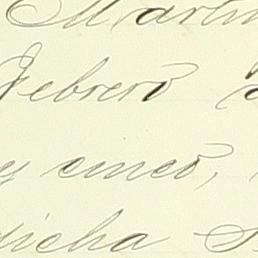 Martin
Febrero
y cinco,
dicha